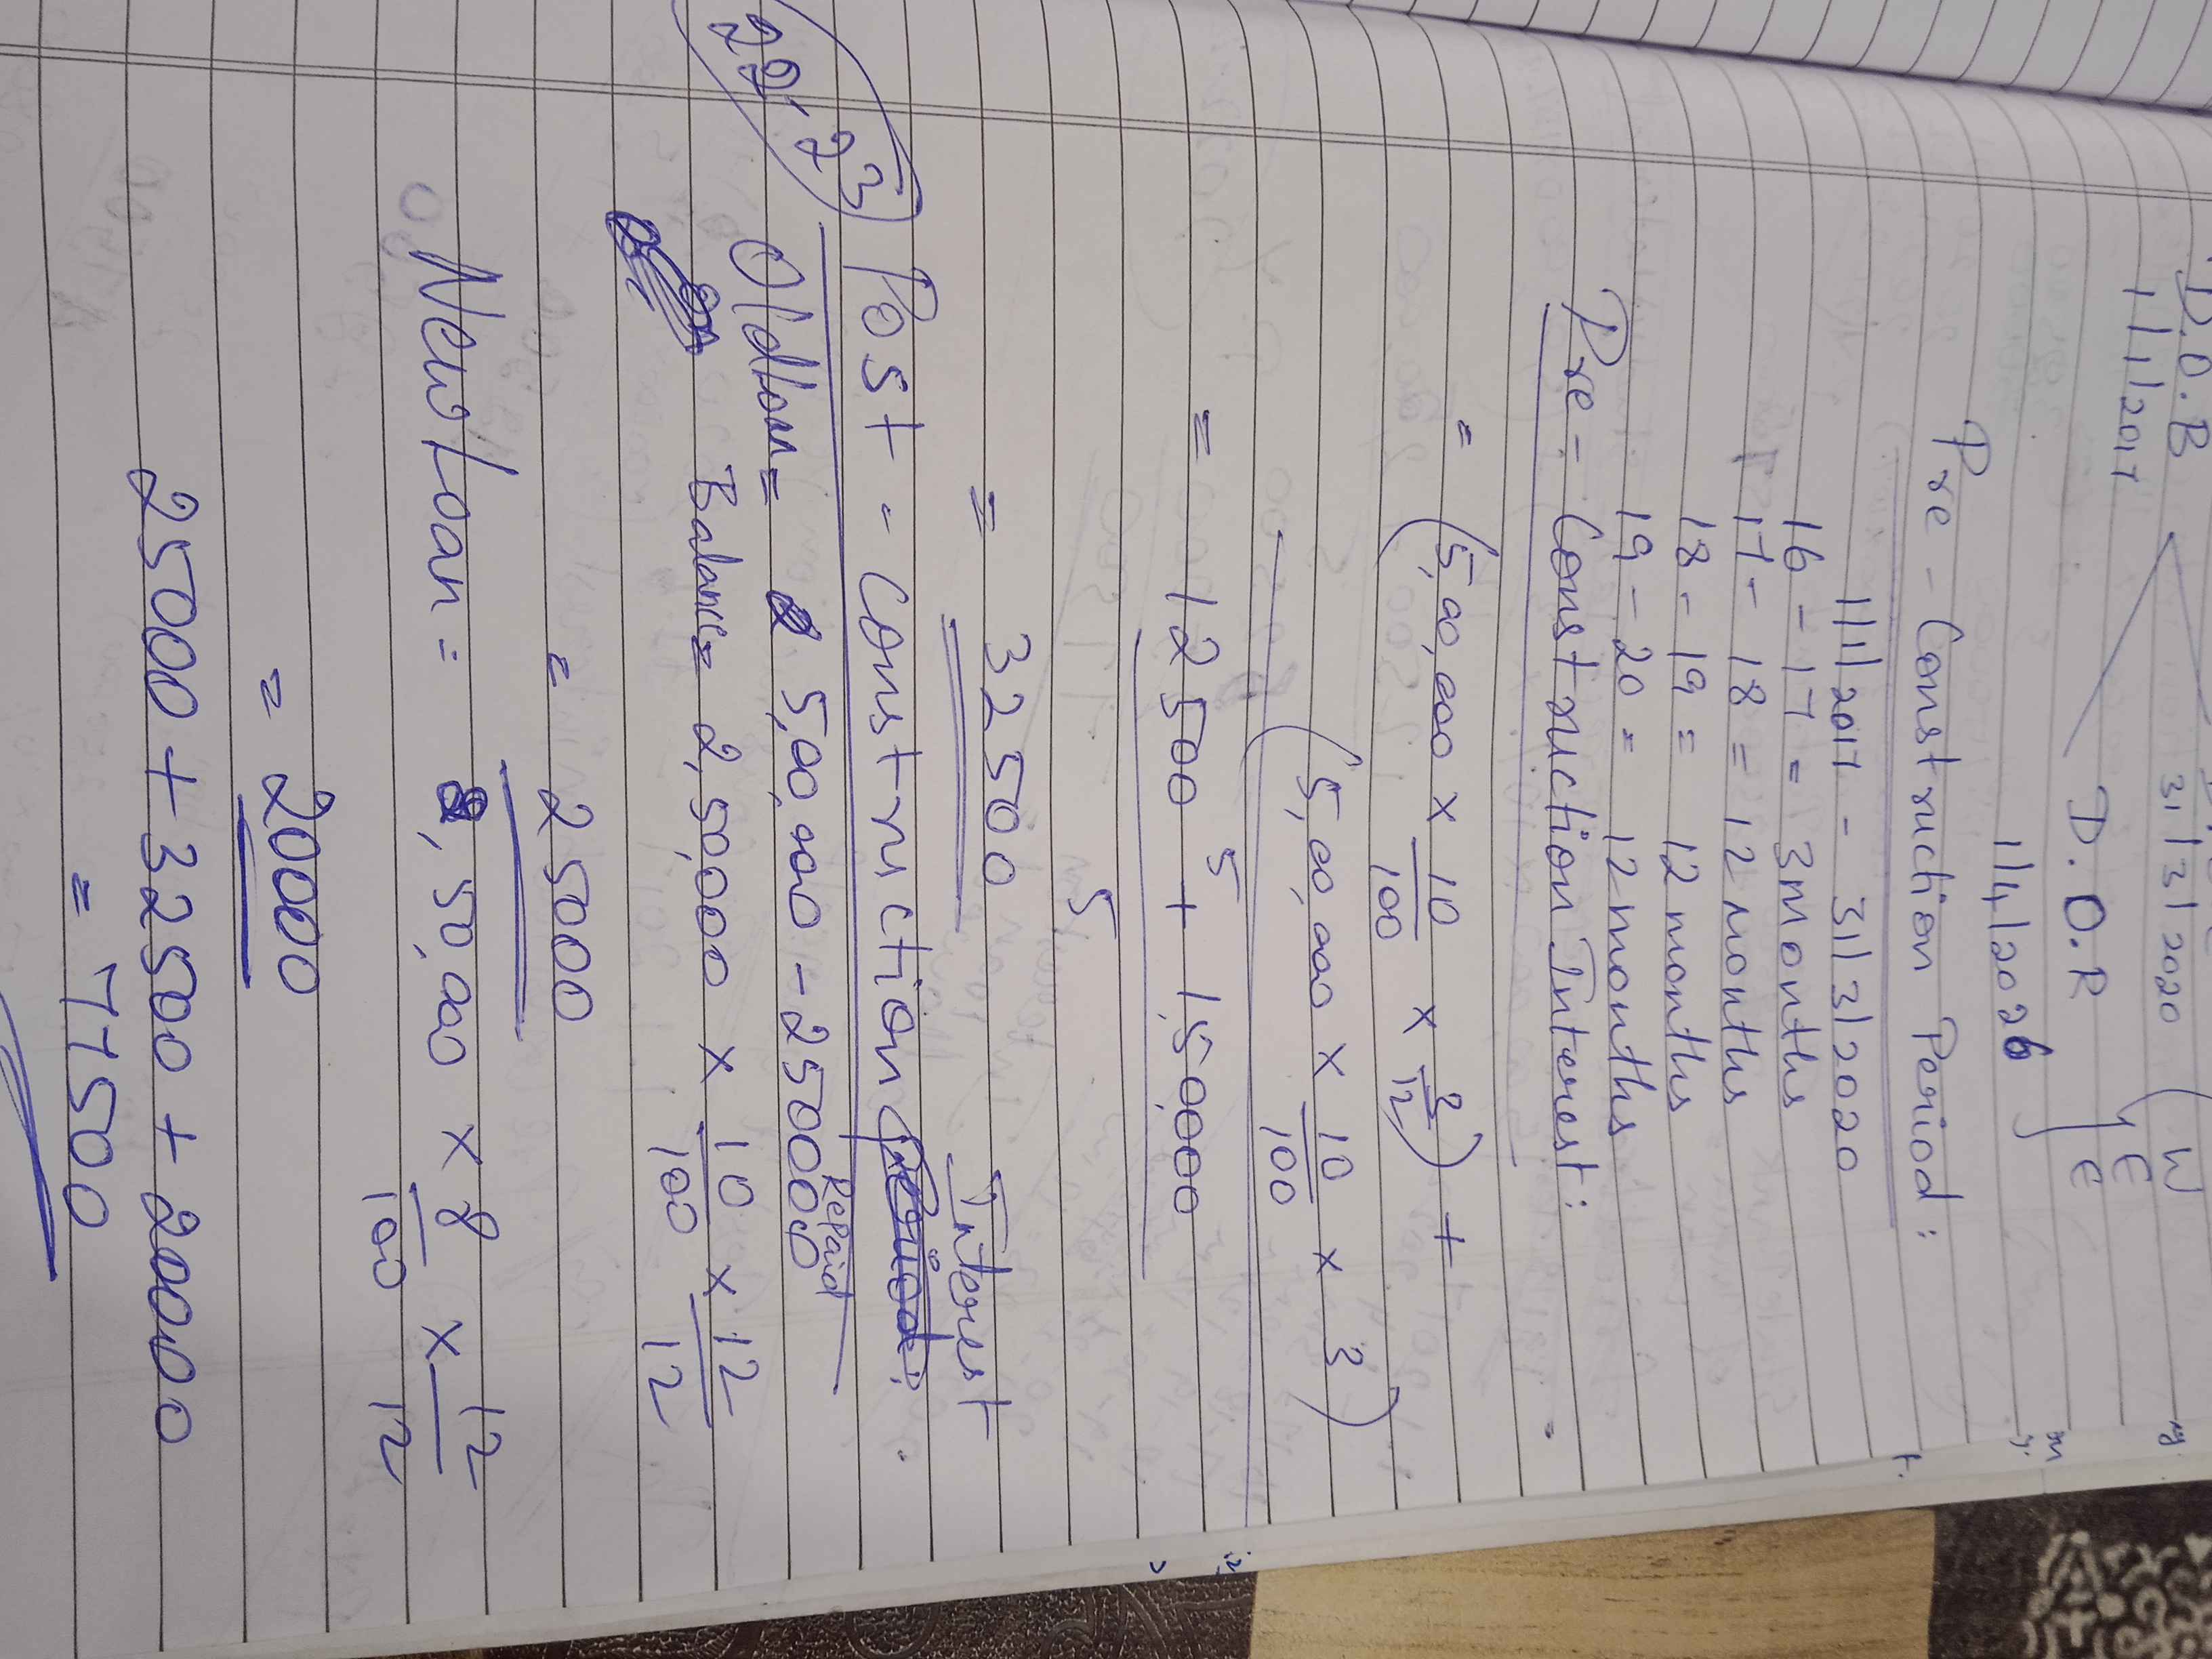 D.O.B
1/1/2017
31/3/2020
D.O.R
1/4/2026
Pre - Construction Period:
1/1/2017 - 31/3/2020
16 - 17 = 3 Months
17 - 18 = 12 Months
18 - 19 = 12 months
19 - 20 = 12 months
Pre - Construction Interest:
= (5,00,000 × 10/100 × 3/12) +
(5,00,000 × 10/100 × 3)
5
= 12500 + 1,50,000
5
= 32500
Interest
22, 23
Post - Construction
Old loan = 5,00,000 - 250000 Repaid
Balance = 2,50,000 × 10/100 × 12/12
= 25000
New Loan = 2,50,000 × 8/100 × 12/12
= 20000
25000 + 32500 + 20000
= 77500